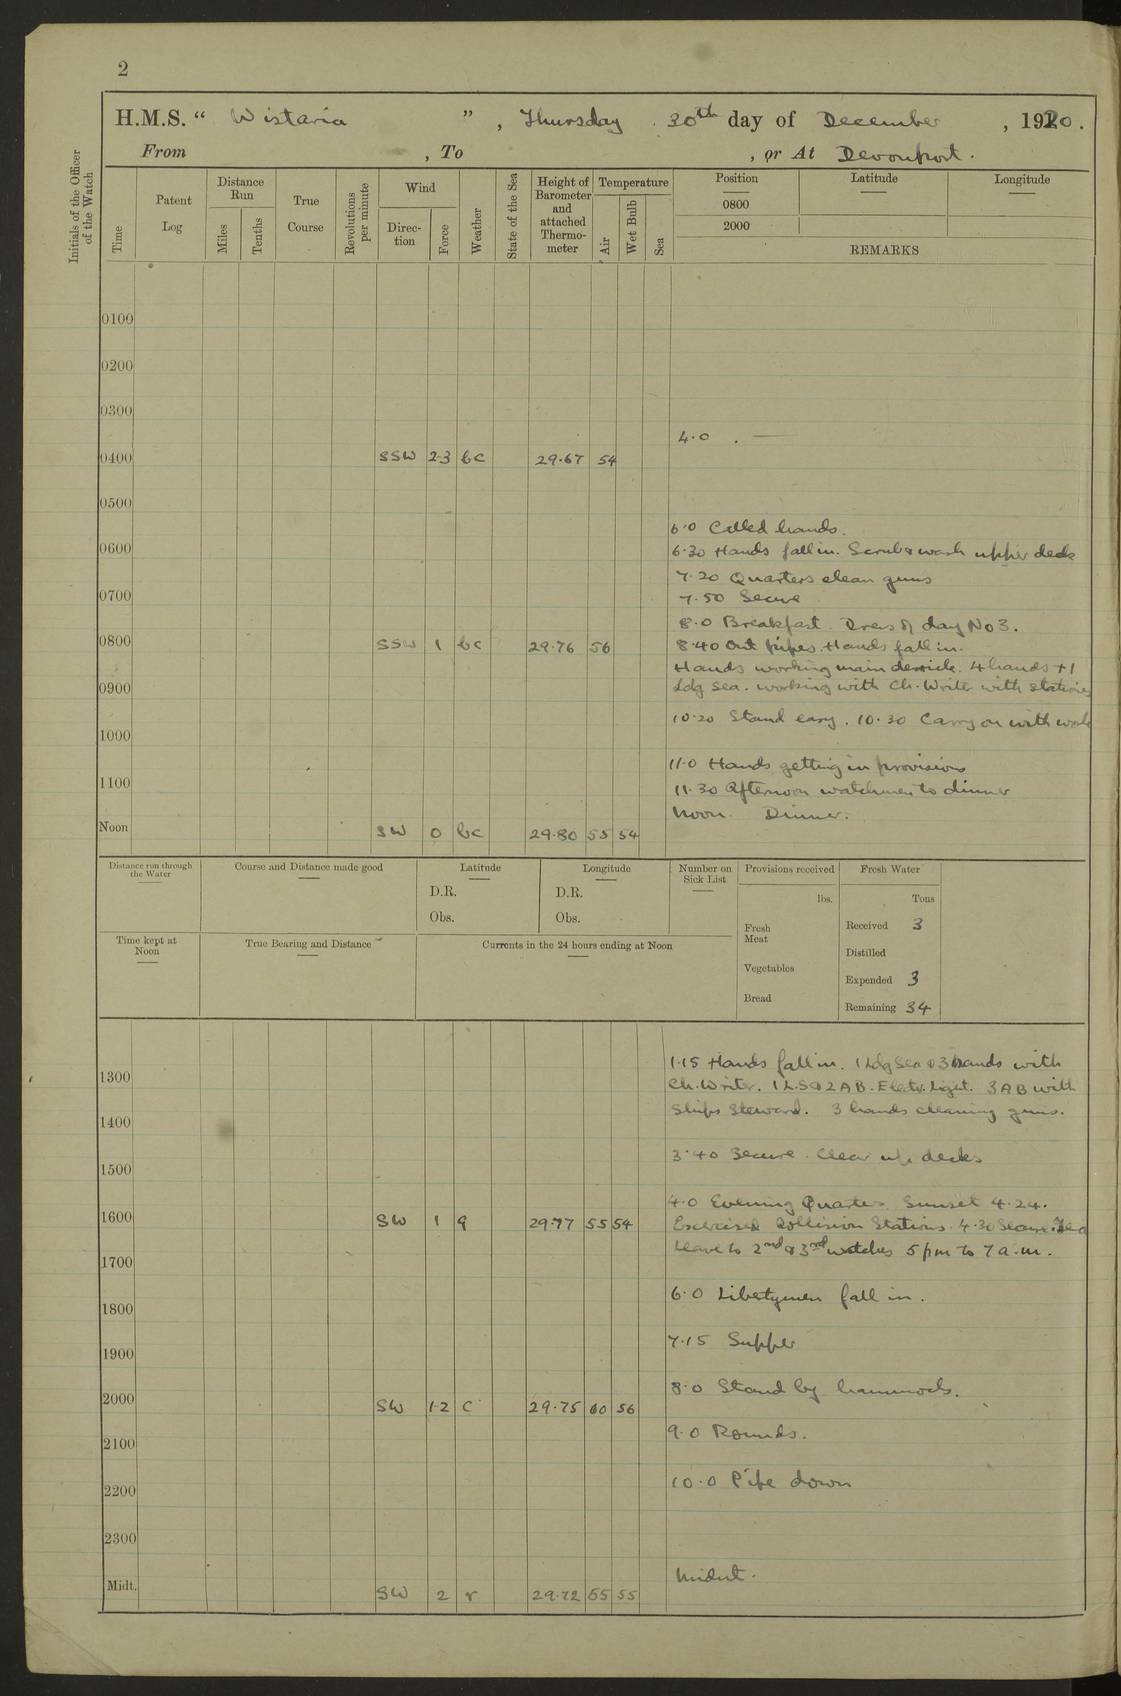 2
H.M.S. “ Wistaria ”, Thursday 30th day of December, 1920.
From , To , or At Devonport.
Initials of the Officer of the Watch
Time
Patent Log
Distance Run
Miles
Tenths
True Course
Revolutions per minute
Wind
Direc-tion
Force
Weather
State of the Sea
Height of Barometer and attached Thermo-meter
Temperature
Air
Wet Bulb
Sea
Position
Latitude
Longitude
0800
2000
REMARKS
0100
0200
0300
4.0 . —
0400 SSW 2-3 bc 29.67 54
0500
6.0 Called hands.
0600 6.30 Hands fall in. Scrub & wash upper deck
7.20 Quarters clean guns
0700 7.50 Secure
8.0 Breakfast. Dress of day No 3.
0800 SSW 1 bc 29.76 56 8.40 Out pipes. Hands fall in.
Hands working main derrick. 4 hands + 1
0900 Ldg Sea. working with Ch. Writer with stationery
10.20 Stand easy. 10.30 Carry on with work
1000
11.0 Hands getting in provisions
1100 11.30 Afternoon watchmen to dinner
Noon. Dinner.
Noon SW 0 bc 29.80 55 54
Distance run through the Water
Course and Distance made good
Latitude
D.R.
Obs.
Longitude
D.R.
Obs.
Number on Sick List
Provisions received
lbs.
Fresh Meat
Vegetables
Bread
Fresh Water
Tons
Received 3
Distilled
Expended 3
Remaining 34
Time kept at Noon
True Bearing and Distance
Currents in the 24 hours ending at Noon
1.15 Hands fall in. 1 Ldg Sea & 3 hands with
1300 Ch. Writer. 1 L.S & 2 AB. Electr. Light. 3 AB with
Ships Steward. 3 hands cleaning guns.
1400
3.40 Secure. Clear up decks
1500
4.0 Evening Quarters. Sunset 4.24.
1600 SW 1 q 29.77 55 54 Exercised Collision Stations. 4.30 Secure. Tea
Leave to 2nd & 3rd watches 5 pm to 7 a.m.
1700
6.0 Libertymen fall in.
1800
7.15 Supper
1900
8.0 Stand by hammocks.
2000 SW 1-2 c 29.75 60 56
9.0 Rounds.
2100
10.0 Pipe down
2200
2300
Midnt.
Midt. SW 2 r 29.72 55 55